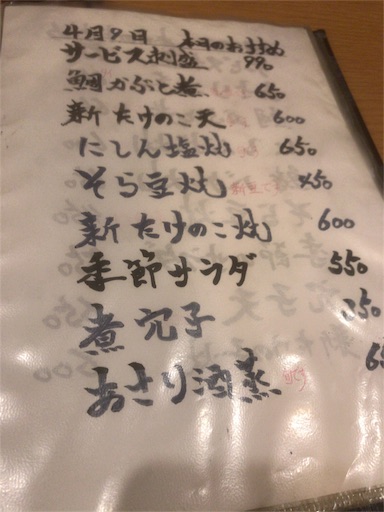 4月9日 本日のおすすめ
サービス刺盛 990
鯛かぶと煮 650
新たけのこ天 600
にしん塩炉 650
そら豆炉 450
新たけのこ炉 600
季節サラダ 550
煮穴子
あさり酒蒸